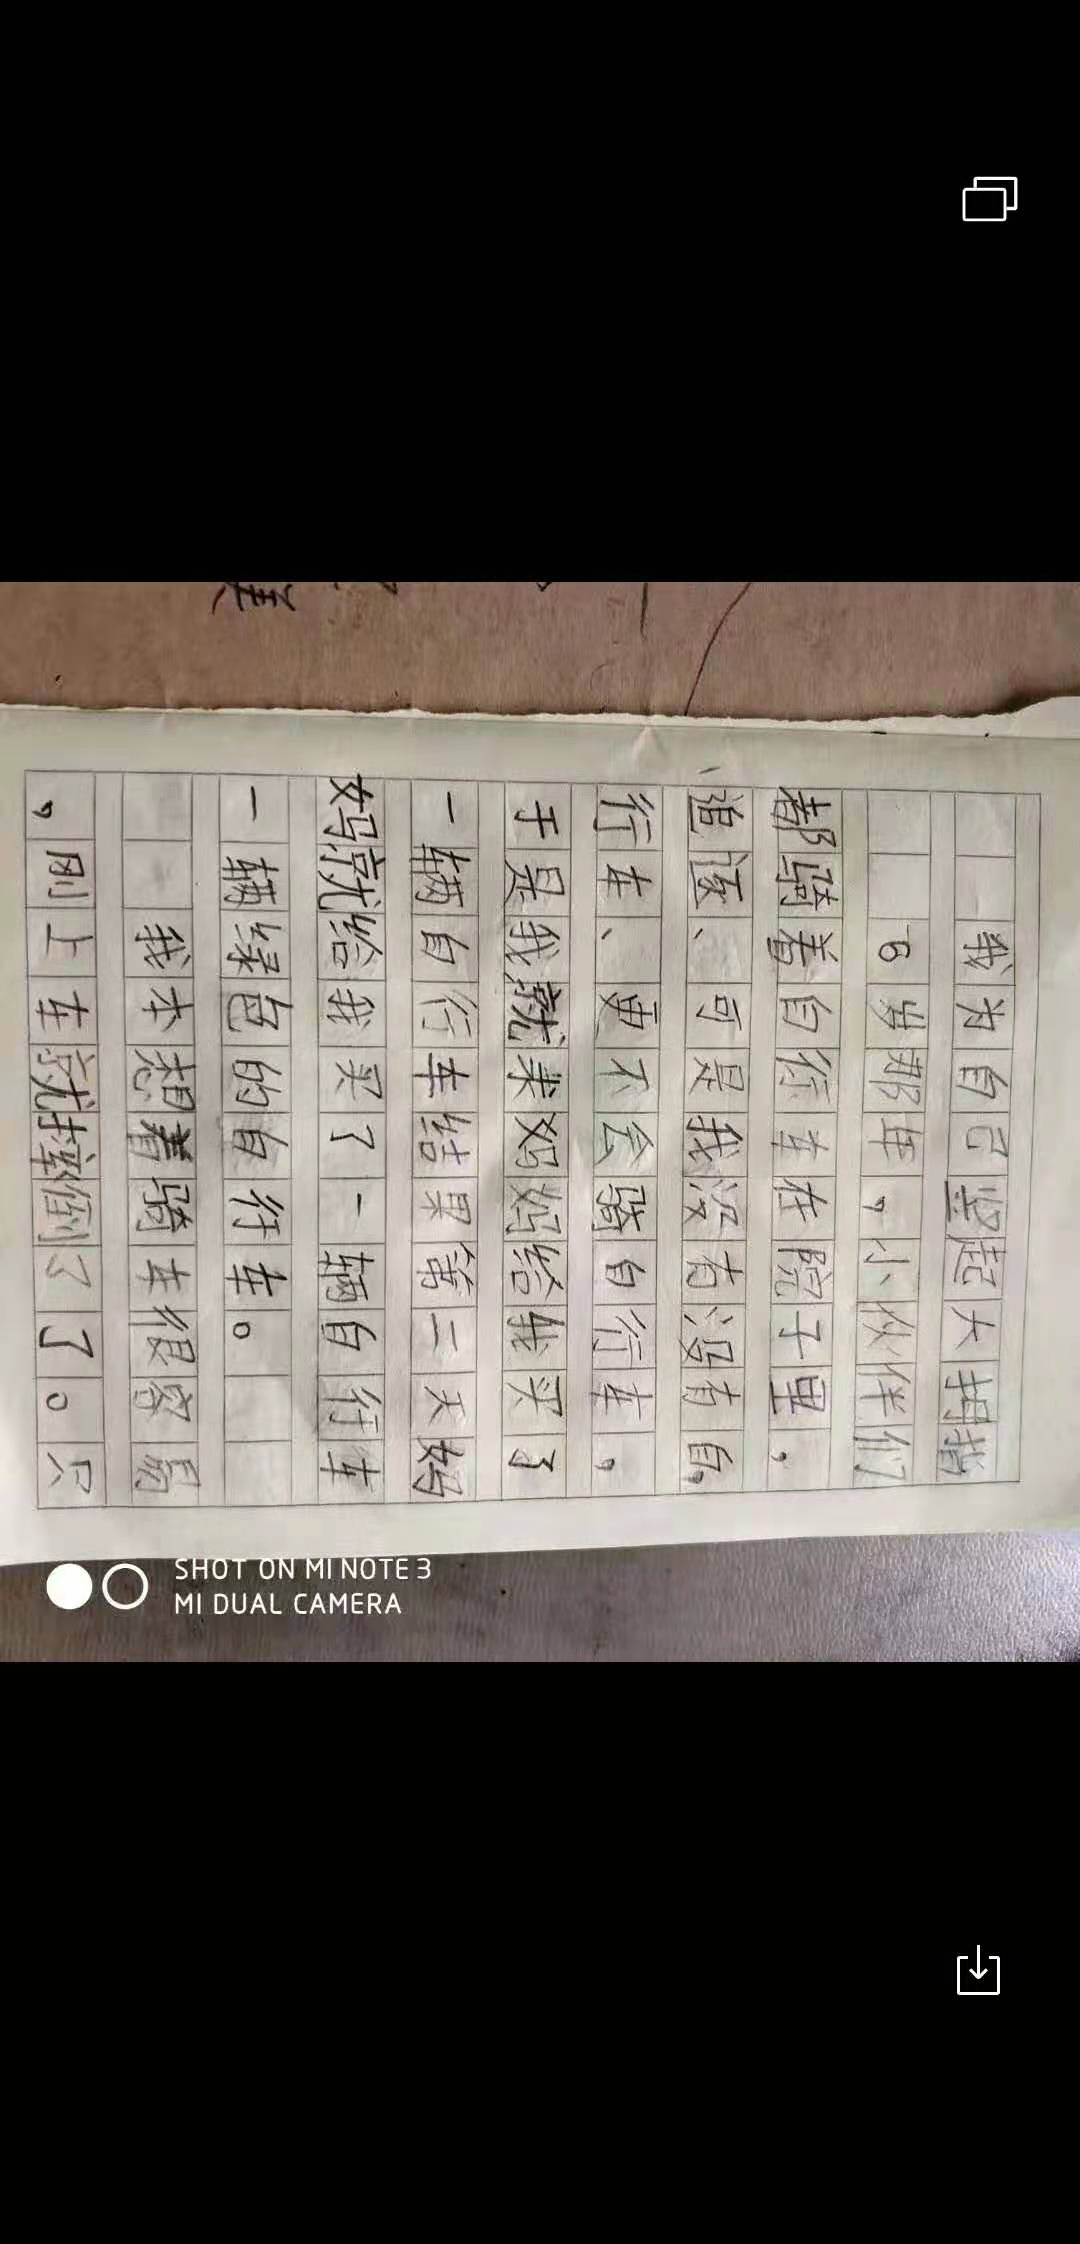 我为自己竖起大拇指
6岁那年，小伙伴们
都骑着自行车在院子里，
追逐、可是我没有没有自
行车、更不会骑自行车，
于是我就求妈妈给我买了
一辆自行车结果第二天妈
妈就给我买了一辆自行车
一辆绿色的自行车。
我本想着骑车很容易
，刚上车就摔倒了了。只
SHOT ON MI NOTE 3
MI DUAL CAMERA